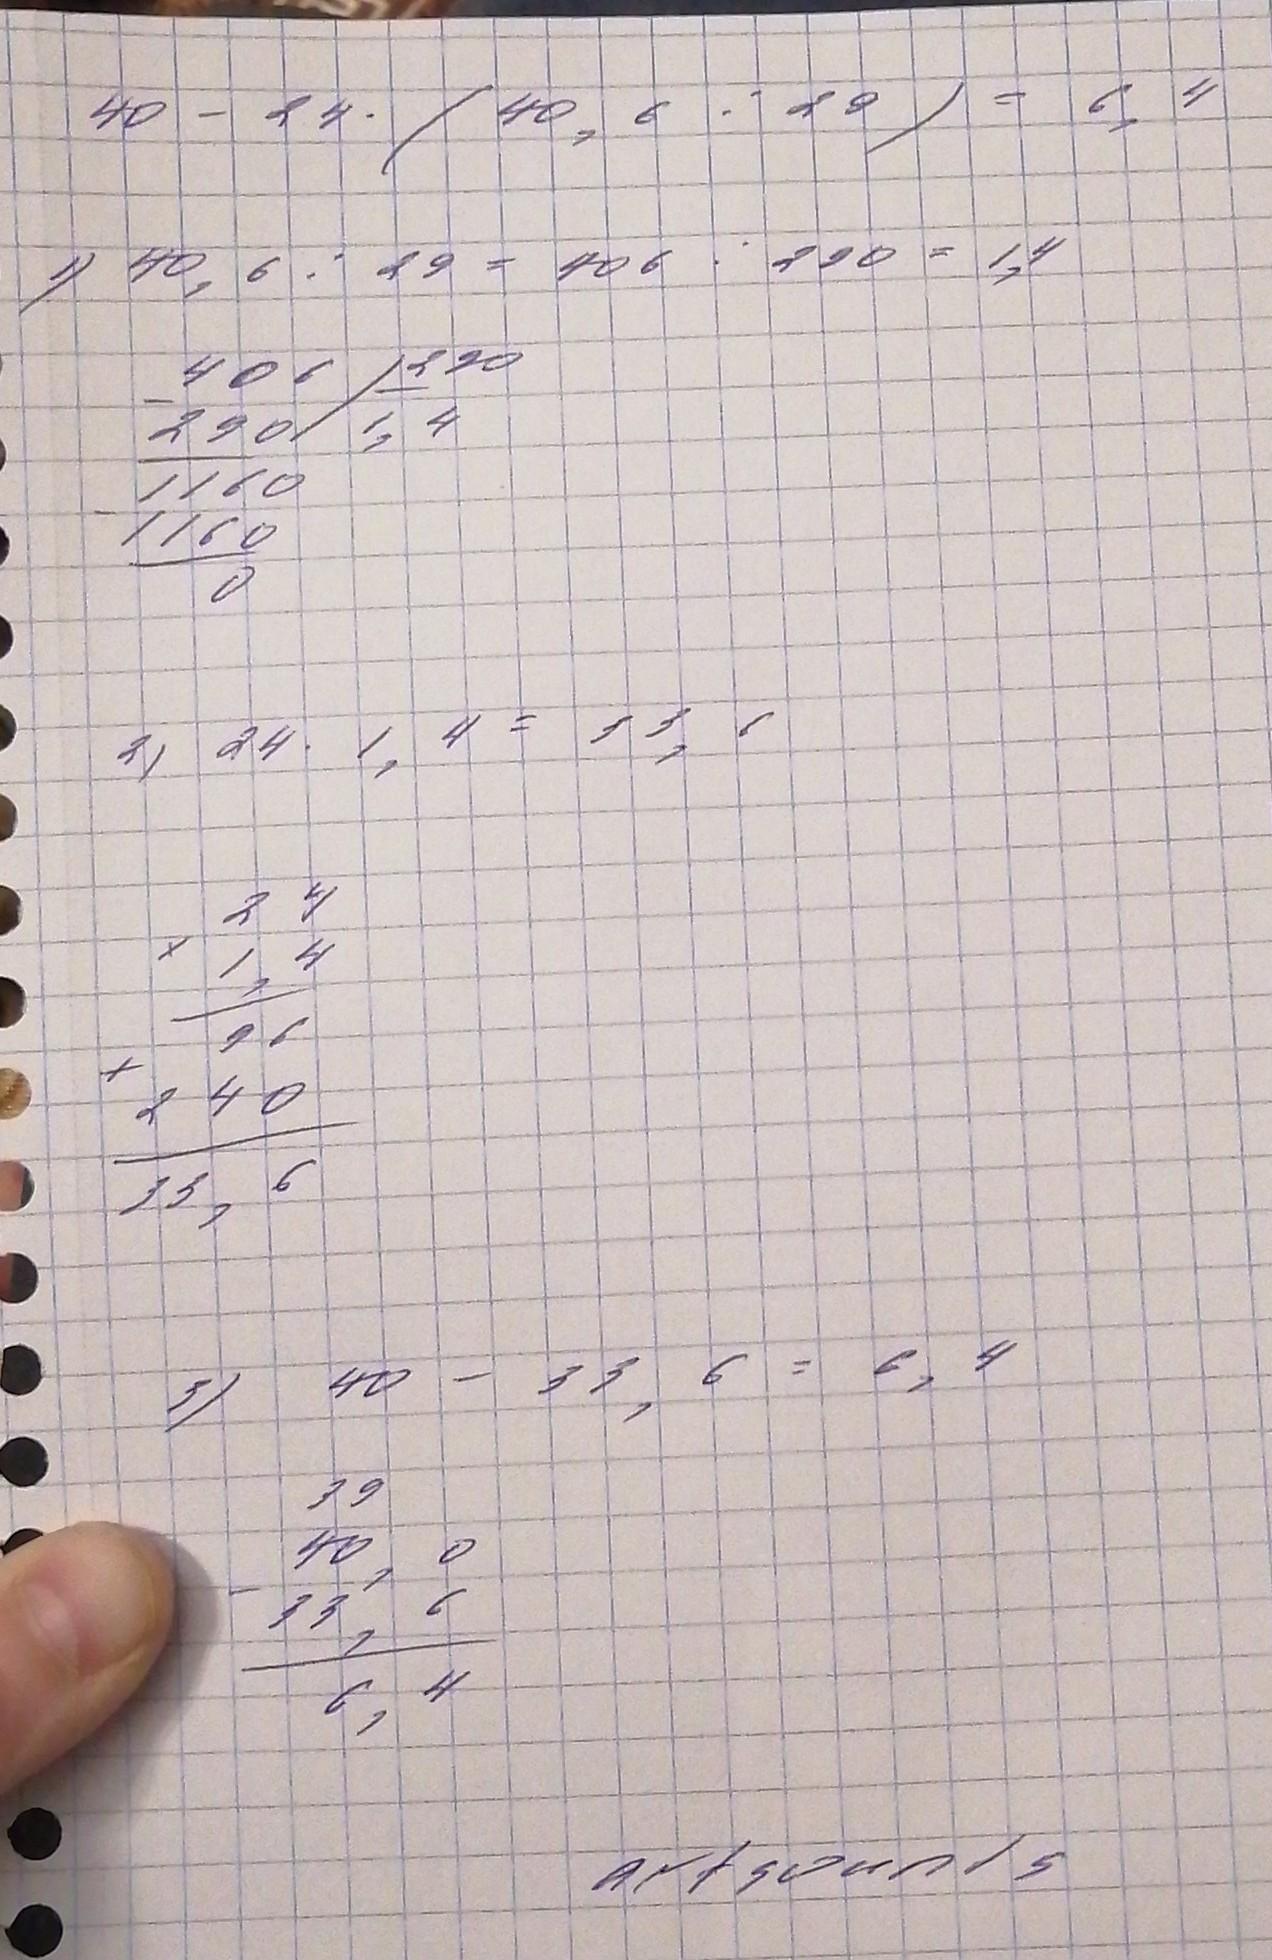 40 - 24 · (40,6 : 29) = 6,4
1) 40,6 : 29 = 406 : 290 = 1,4
- 406 | 290
290 1,4
1160
- 1160
0
2) 24 · 1,4 = 33,6
24
× 1,4
96
+ 240
33,6
3) 40 - 33,6 = 6,4
39
40,0
- 33,6
6,4